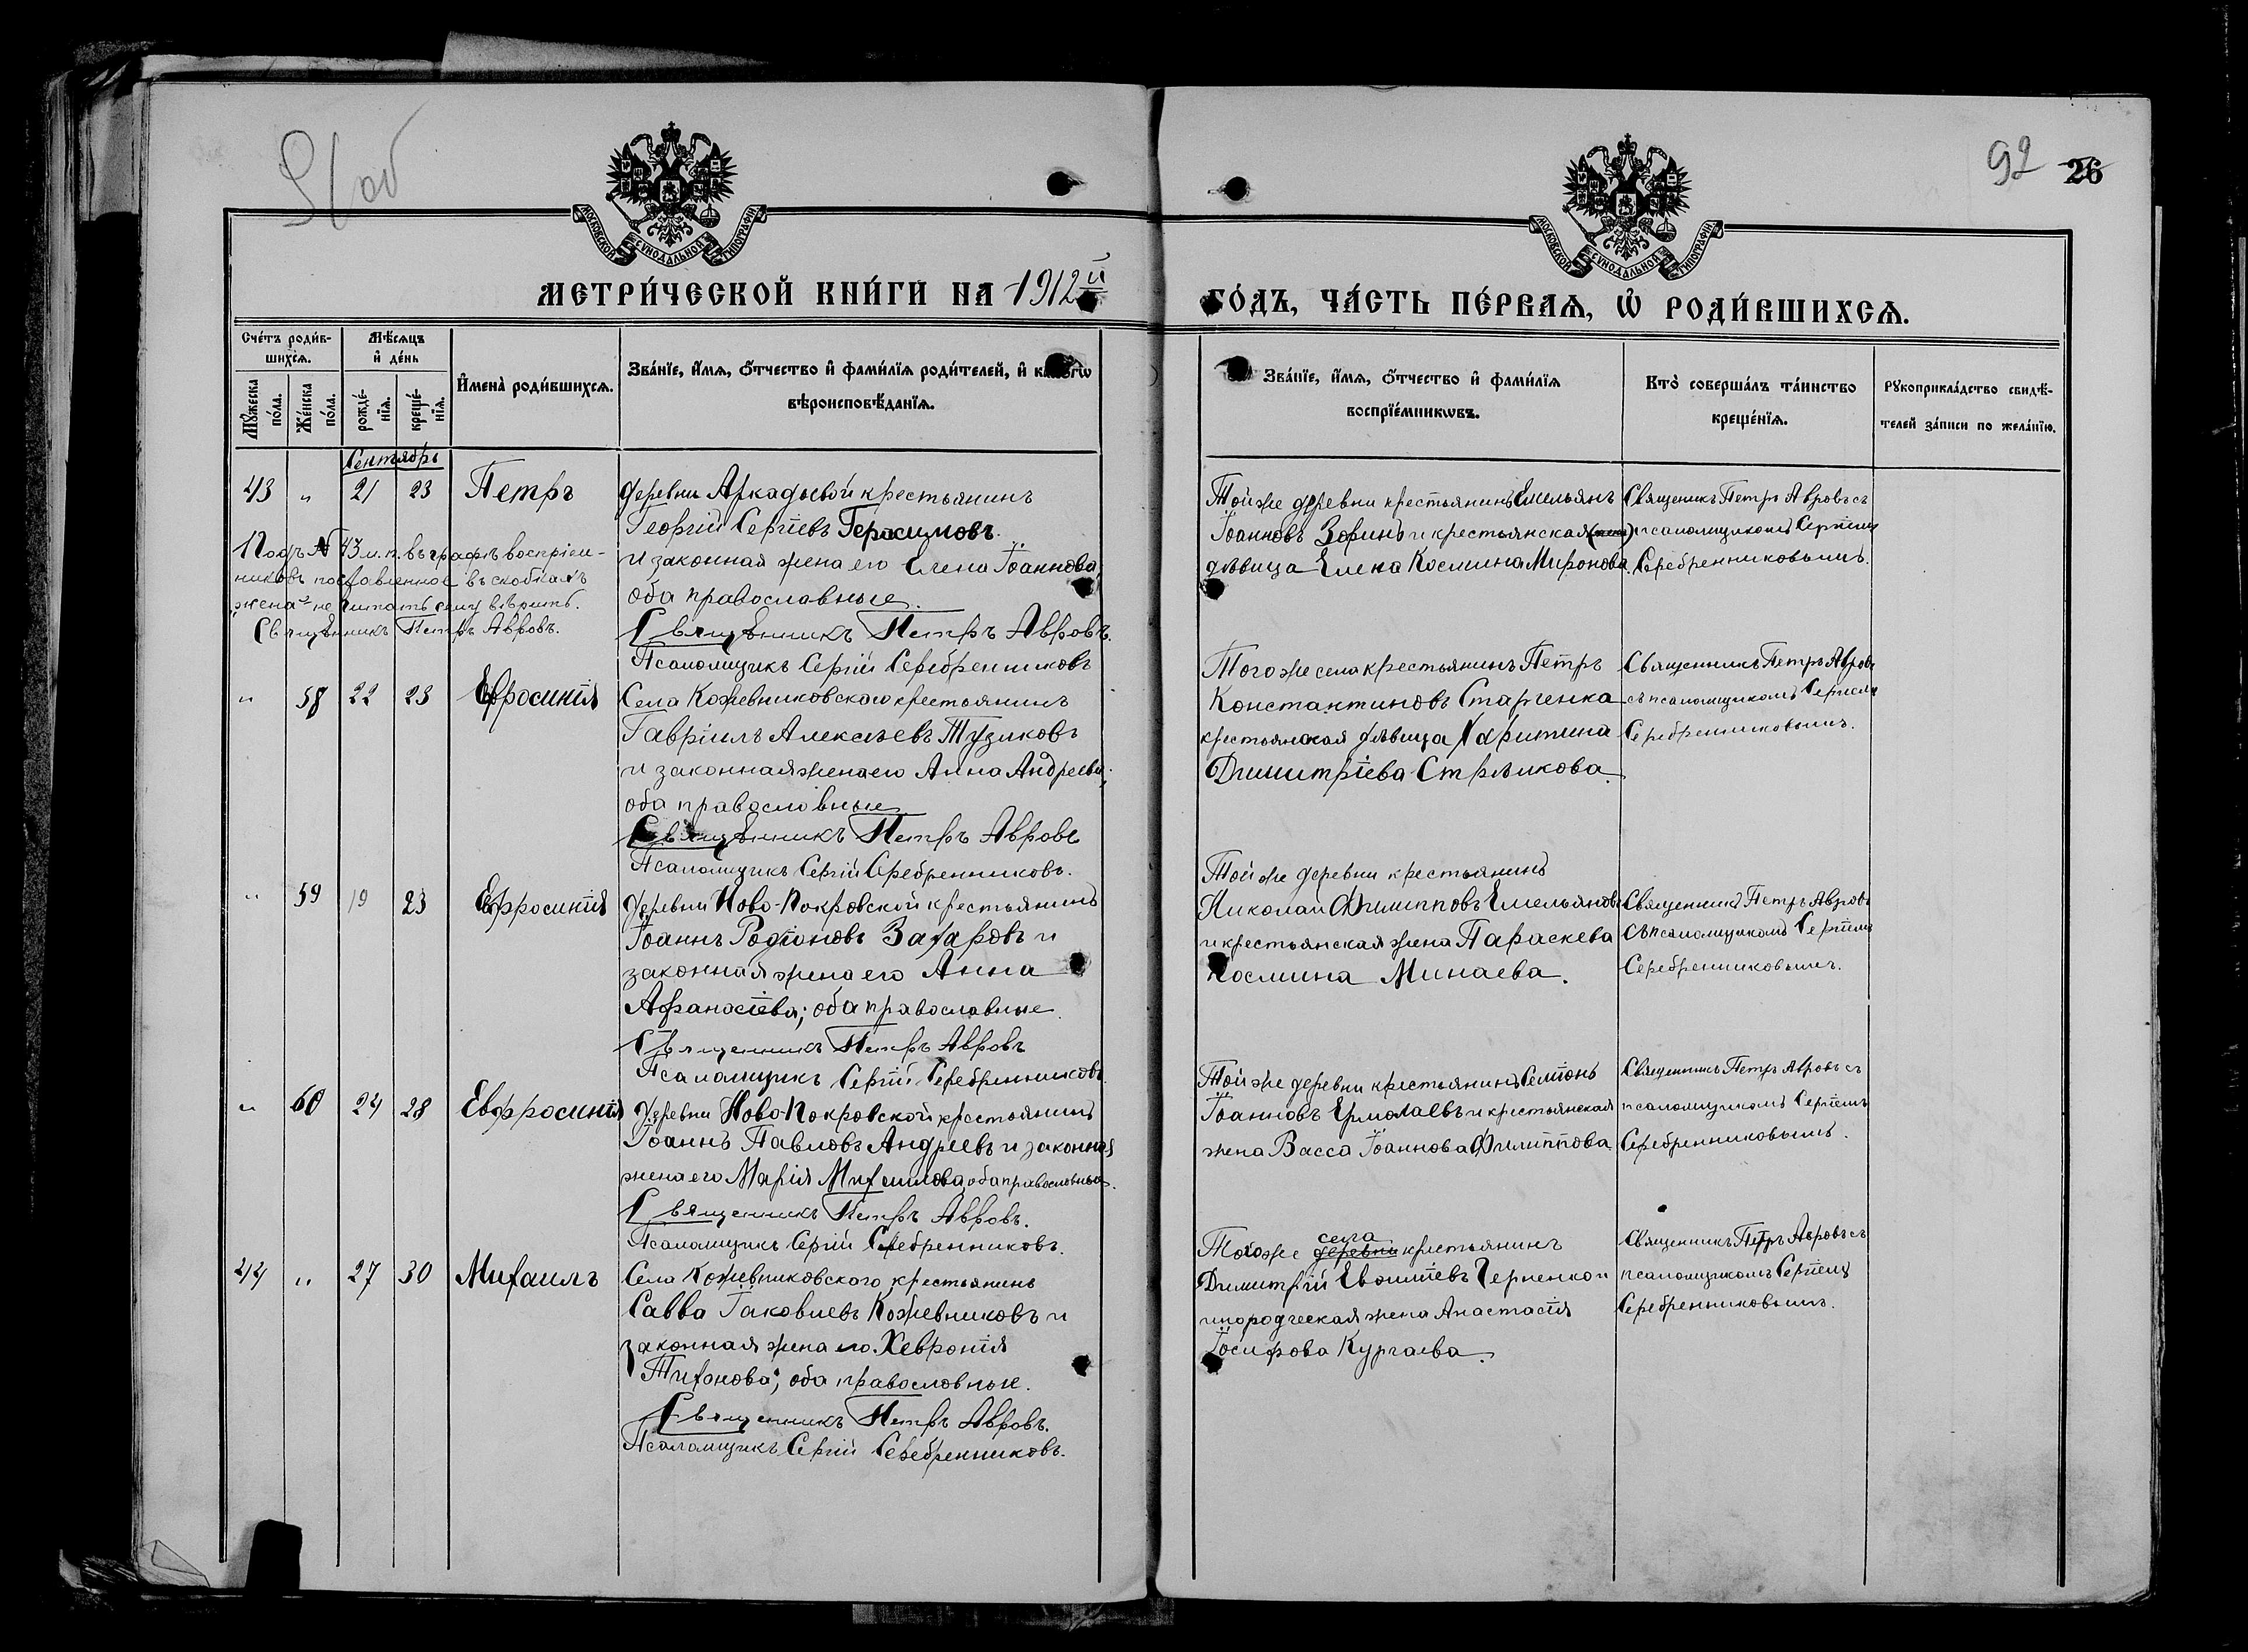 91об
92 26
МОСКОВСКОЙ СѴНОДАЛЬНОЙ ТИПОГРАФІИ
МОСКОВСКОЙ СѴНОДАЛЬНОЙ ТИПОГРАФІИ
МЕТРИ́ЧЕСКОЙ КНИ́ГИ НА 1912й
ГО́ДЪ, ЧА́СТЬ ПЕ́РВАѦ, Ѡ҆ РОДИ́ВШИХСѦ.
Сче́тъ роди́в-
шихсѧ.
Мѣ́сѧцъ
и҆ де́нь
Мꙋ́жеска
по́ла.
Же́нска
по́ла.
рожде́-
нїѧ.
креще́-
нїѧ.
И҆мена̀ роди́вшихсѧ.
Зва́нїе, и҆́мѧ, ѻ҆́тчество и҆ фами́лїѧ роди́телей, и҆ како́гѡ
вѣроисповѣ́данїѧ.
Зва́нїе, и҆́мѧ, ѻ҆́тчество и҆ фами́лїѧ
воспрїе́мникѡвъ.
Кто̀ соверша́лъ та́инство
креще́нїѧ.
Рꙋкоприкла́дство свидѣ́-
телей за́писи по жела́нїю.
Сентябрь
43 " 21 23 Петръ
деревни Аркадьевой крестьянинъ
Георгій Сергіевъ Герасимовъ
и законная жена его Елена Іоаннова;
оба православные.
Священникъ Петръ Авровъ.
Псаломщикъ Сергій Серебренниковъ
Подъ № 43 м. п. въ графѣ воспріем-
никовъ поставленное въ скобкахъ
"жена" не читать сему вѣрить.
Священникъ Петръ Авровъ.
Той же деревни крестьянинъ Емельянъ
Іоанновъ Зоринъ и крестьянская (жена)
дѣвица Елена Космина Миронова.
Священникъ Петръ Авровъ съ
псаломщикомъ Сергіемъ
Серебренниковымъ.
" 58 22 23 Евфросинія
Села Кожевниковскаго крестьянинъ
Гавріилъ Алексѣевъ Тузиковъ
и законная жена его Анна Андреева;
оба православные
Священникъ Петръ Авровъ
Псаломщикъ Сергій Серебренниковъ.
Того же села крестьянинъ Петръ
Константиновъ Старченка
крестьянская дѣвица Харитина
Димитріева Стрѣлкова.
Священникъ Петръ Авровъ
съ псаломщикомъ Сергіемъ
Серебренниковымъ.
" 59 19 23 Евфросинія
деревни Ново-Покровской крестьянинъ
Іоаннъ Родіоновъ Захаровъ и
законная жена его Анна
Афанасіева; оба православные.
Священникъ Петръ Авровъ
Псаломщикъ Сергій Серебренниковъ.
Той же деревни крестьянинъ
Николай Филипповъ Емельяновъ
и крестьянская жена Параскева
Космина Минаева.
Священникъ Петръ Авровъ
съ псаломщикомъ Сергіемъ
Серебренниковымъ.
" 60 24 28 Евфросинія
деревни Ново-Покровской крестьянинъ
Іоаннъ Павловъ Андреевъ и законная
жена его Марія Михаилова, оба православные.
Священникъ Петръ Авровъ.
Псаломщикъ Сергій Серебренниковъ.
Той же деревни крестьянинъ Семіонъ
Іоанновъ Ермолаевъ и крестьянская
жена Васса Іоаннова Филиппова.
Священникъ Петръ Авровъ съ
псаломщикомъ Сергіемъ
Серебренниковымъ.
44 " 27 30 Михаилъ
Села Кожевниковского, крестьянинъ
Савва Іаковлевъ Кожевниковъ и
законная жена его Хевронія
Тихонова; оба православные.
Священникъ Петръ Авровъ.
Псаломщикъ Сергій Серебренниковъ.
села
Того же деревни крестьянинъ
Димитрій Черненкои
инородческая жена Анастасія
Іосифова Кургаева.
Священникъ Петръ Авровъ съ
псаломщикомъ Сергіемъ
Серебренниковымъ.